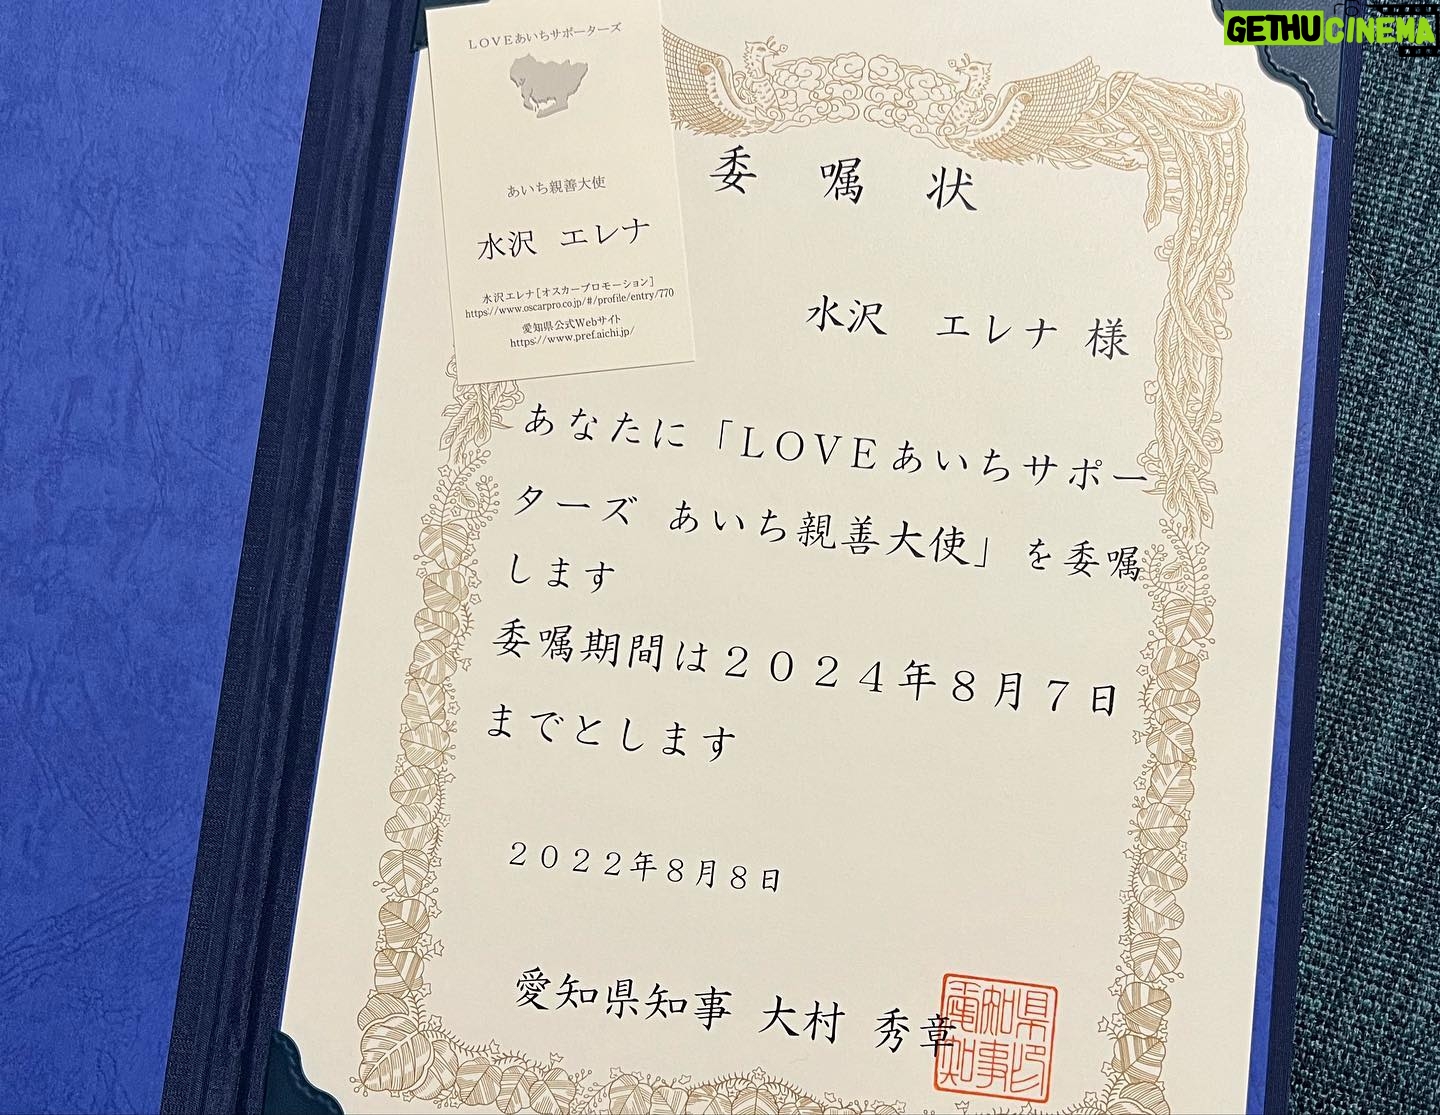 GETHU CINEMA
LOVEあいちサポーターズ
あいち親善大使
水沢 エレナ
水沢エレナ[オスカープロモーション]
https://www.oscarpro.co.jp/#/profile/entry/770
愛知県公式Webサイト
https://www.pref.aichi.jp/
委嘱状
水沢 エレナ 様
あなたに「LOVEあいちサポー
ターズ あいち親善大使」を委嘱
します
委嘱期間は2024年8月7日
までとします
2022年8月8日
愛知県知事 大村 秀章
愛知県知事印